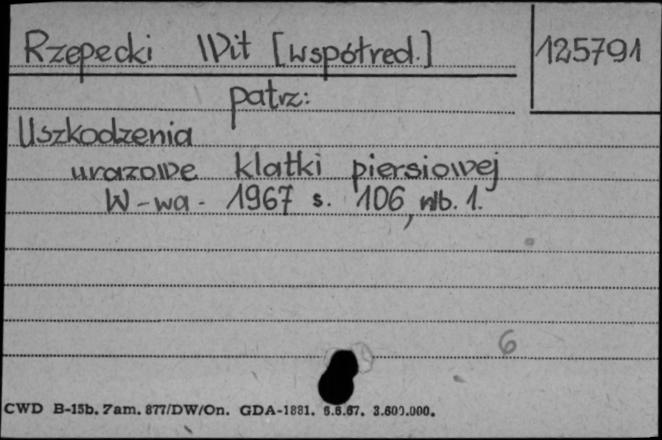 Rzepecki Wit [współred.]
125791
patrz:
Uszkodzenia
urazowe klatki piersiowej
W-wa - 1967 s. 106, nlb. 1.
6
CWD B-15b. Zam. 877/DW/On. GDA-1881. 6.6.67. 3.600.000.